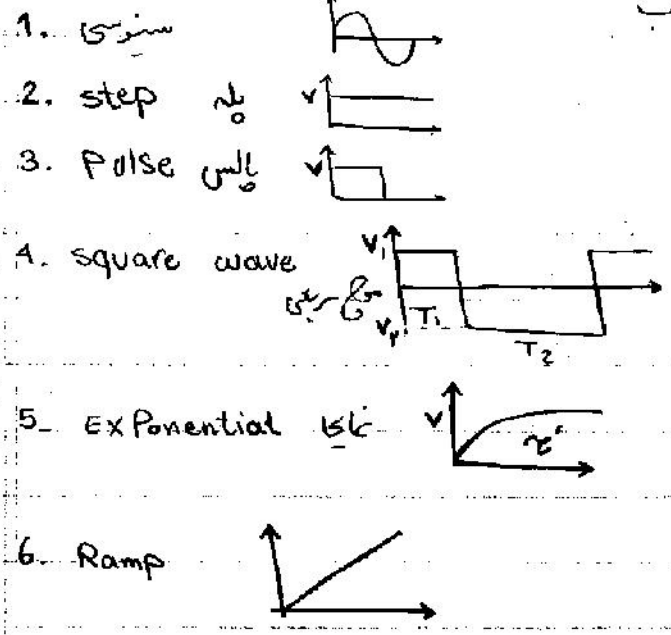 1. سینوسی
2. step پله V
3. Pulse پالس V
4. square wave V₁
موج مربعی V₂ T₁
T₂
5_ Exponential نمایی V τ
6. Ramp